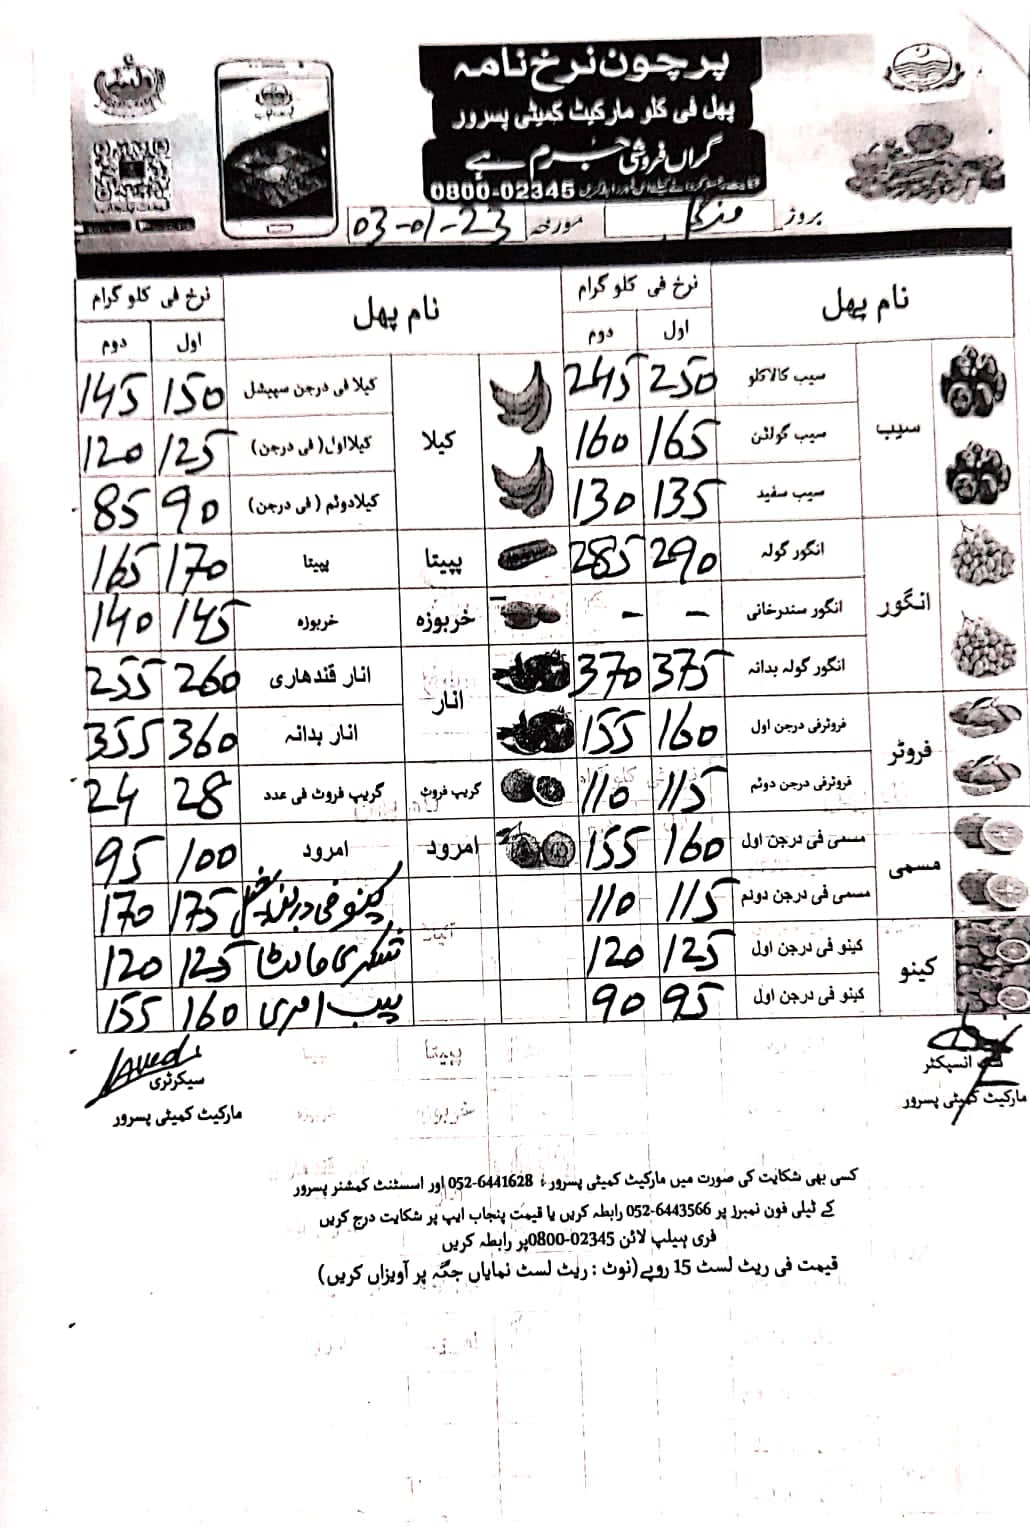 پرچون نرخ نامہ
پھل فی کلو مارکیٹ کمیٹی پسرور
گراں فروشی جرم ہے
0800-02345
بروز منگل مورخہ 03-01-23
نام پھل نرخ فی کلو گرام نام پھل نرخ فی کلو گرام
اول دوم اول دوم
سیب سیب کالاکلو 250 245 کیلا کیلا فی درجن سپیشل 150 145
سیب گولڈن 165 160 کیلااول( فی درجن) 125 120
سیب سفید 135 130 کیلادوئم ( فی درجن) 90 85
انگور انگور گولہ 290 285 پپیتا پپیتا 170 165
انگور سندرخانی - - خربوزہ خربوزہ 145 140
انگور گولہ بدانہ 375 370 انار انار قندھاری 260 255
فروٹر فروٹرفی درجن اول 160 155 انار بدانہ 360 355
فروٹرفی درجن دوئم 115 110 گریپ فروٹ گریپ فروٹ فی عدد 28 24
مسمی مسمی فی درجن اول 160 155 امرود امرود 100 95
مسمی فی درجن دوئم 115 110 کینو فی درجن سپیشل 175 170
کینو کینو فی درجن اول 125 120 شکری مالٹا 125 120
کینو فی درجن اول 95 90 سیب امری 160 155
انسپکٹر سیکرٹری
مارکیٹ کمیٹی پسرور مارکیٹ کمیٹی پسرور
کسی بھی شکایت کی صورت میں مارکیٹ کمیٹی پسرور: 052-6441628 اور اسسٹنٹ کمشنر پسرور
کے ٹیلی فون نمبرز پر 052-6443566 رابطہ کریں یا قیمت پنجاب ایپ پر شکایت درج کریں
فری ہیلپ لائن 02345-0800پر رابطہ کریں
قیمت فی ریٹ لسٹ 15 روپے(نوٹ : ریٹ لسٹ نمایاں جگہ پر آویزاں کریں)